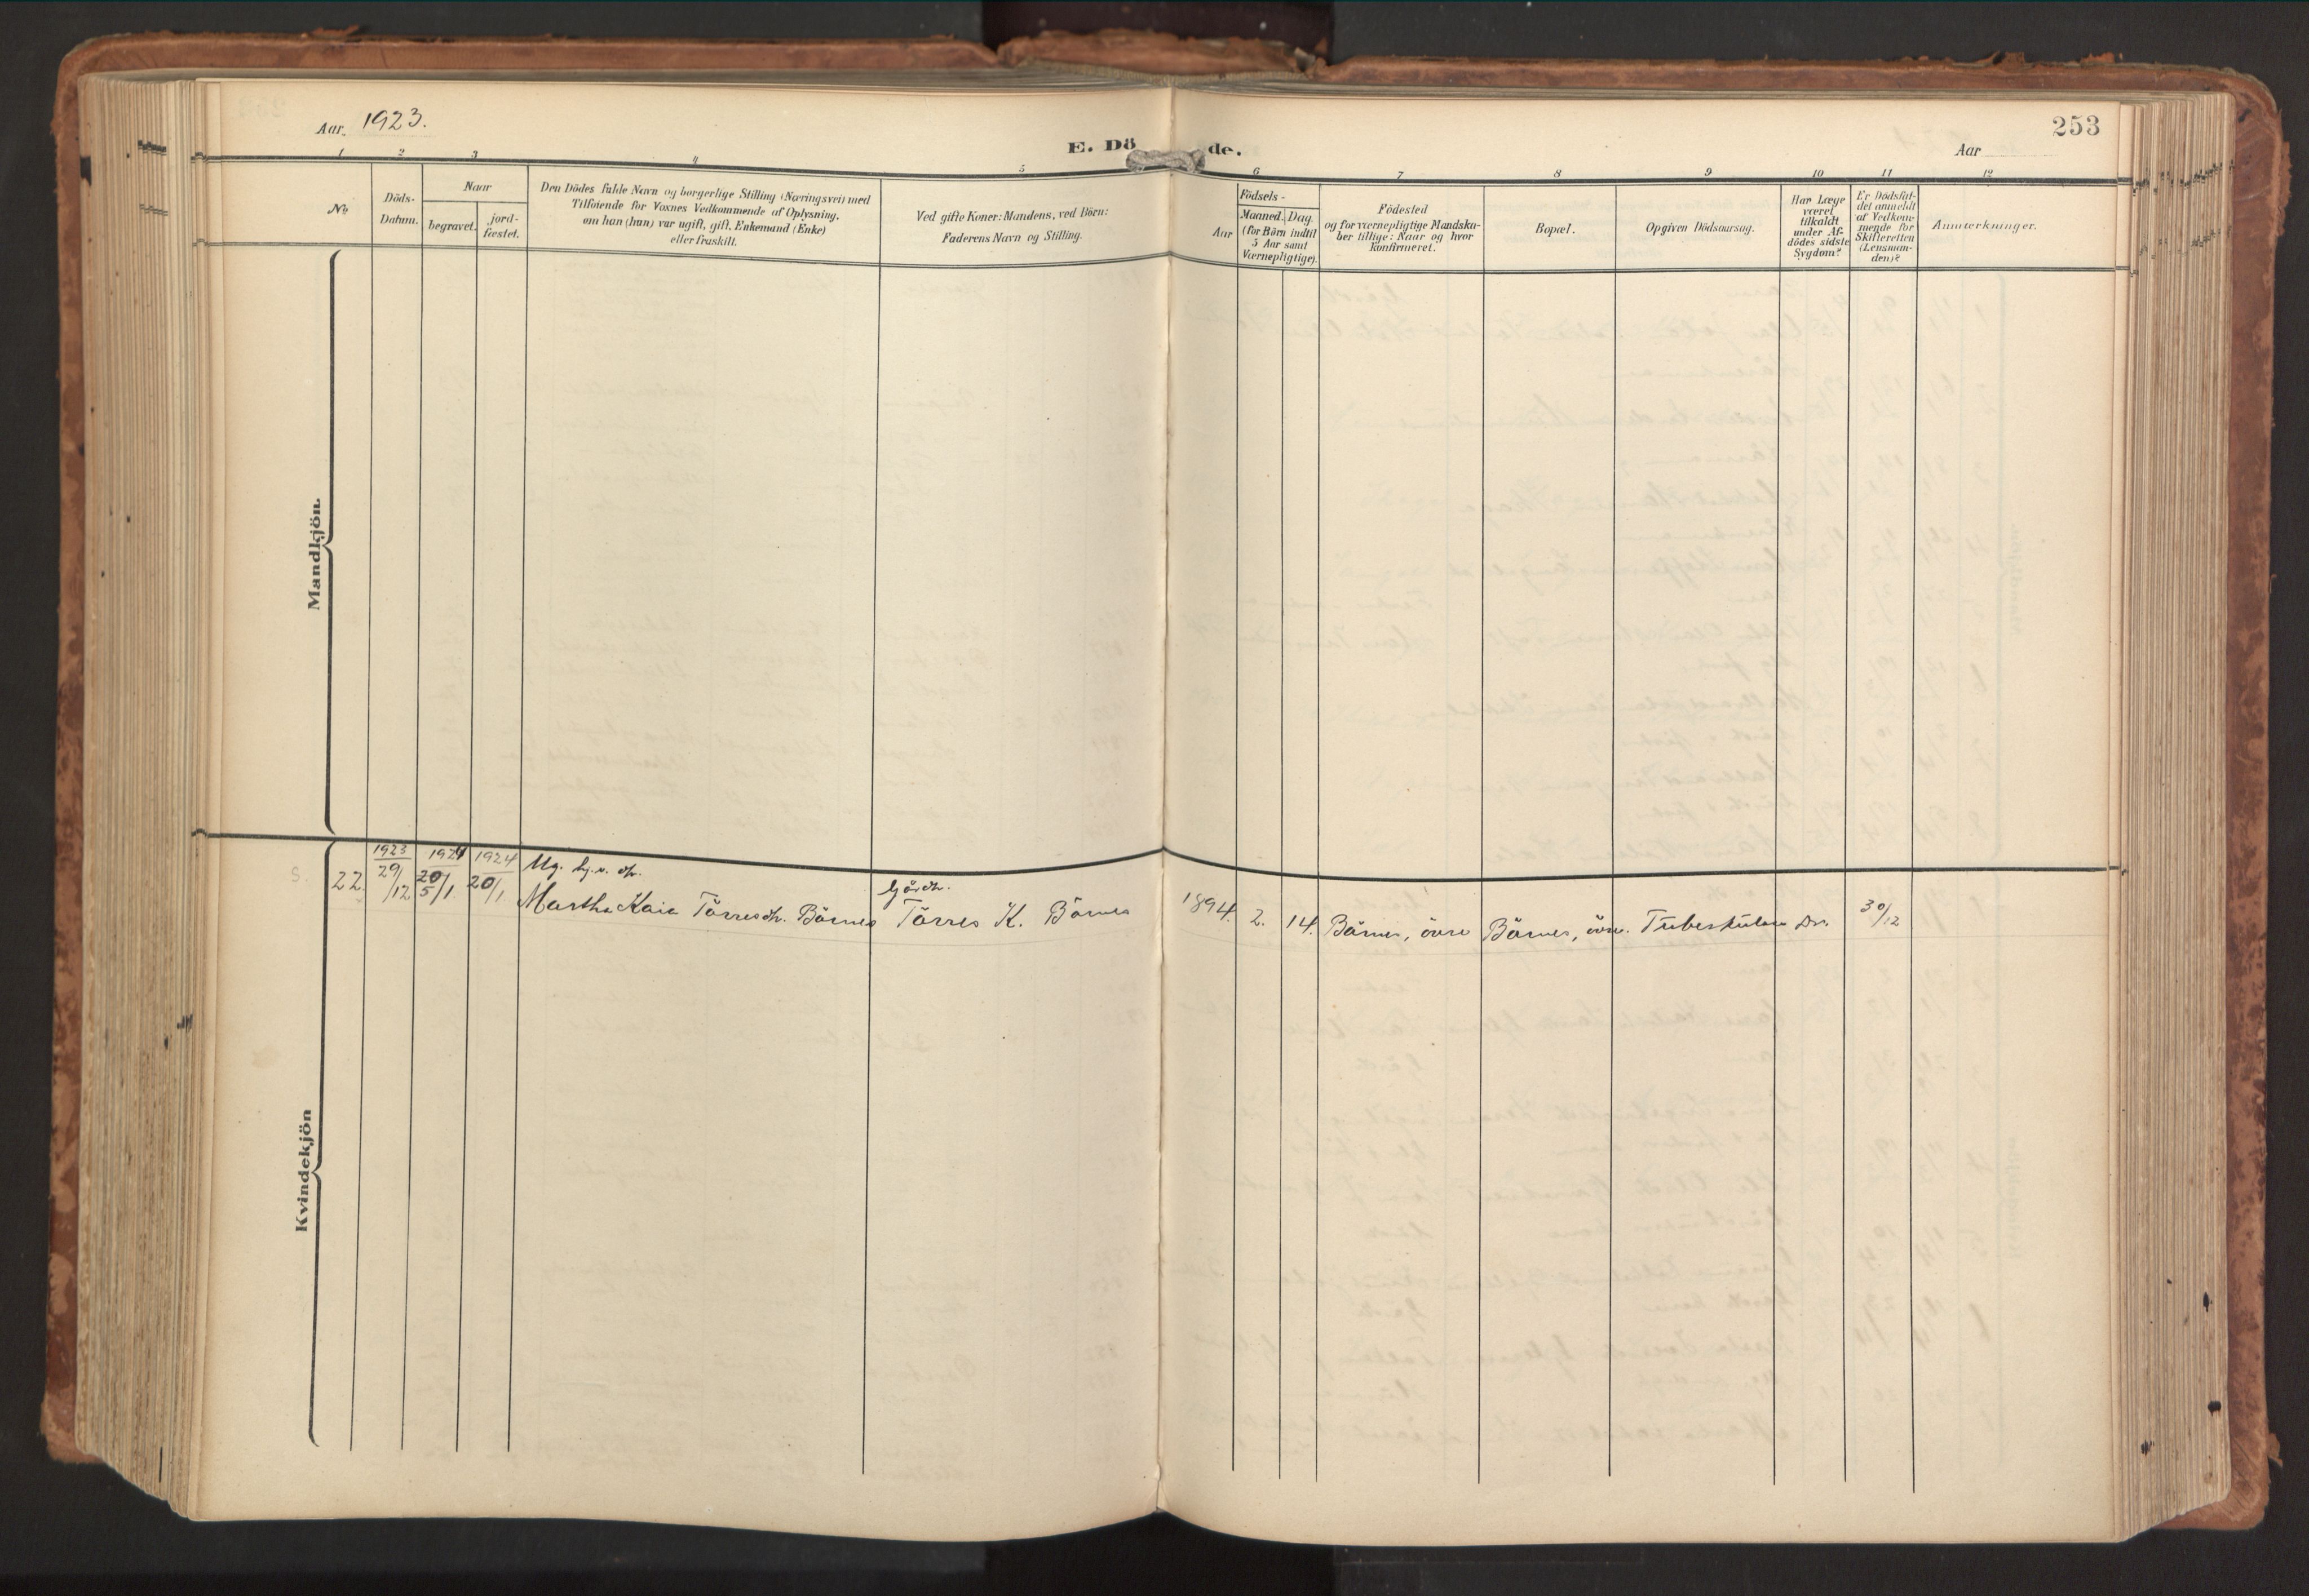 Aar 1923.
E. Döde.
253
Aar
1 2 3 4 5 6 7 8 9 10 11 12
No
Döds-
Datum.
Naar
begravet.
jord-
fæstet.
Den Dödes fulde Navn og borgerlige Stilling (Næringsvei) med
Tilföiende for Voxnes Vedkommende af Oplysning,
om han (hun) var ugift, gift, Enkemand (Enke)
eller fraskilt.
Ved gifte Koner: Mandens, ved Börn:
Faderens Navn og Stilling.
Födsels-
Aar
Maaned.
Dag.
(for Börn indtil
5 Aar samt
Værnepligtige).
Födested
og for værnepligtige Mandska-
ber tillige: Naar og hvor
konfirmeret.
Bopæl.
Opgiven Dödsaarsag.
Har Læge
været
tilkaldt
under Af-
dödes sidste
Sygdom?
Er Dödsfal-
det anmeldt
af Vedkom-
mende for
Skifteretten
(Lensman-
den)?
Anmerkninger.
Mandkjön.
1923 1924 1924 Ug.
S. 22. 29/12 20/1 5/1 20/1 Gårdb.
Martha Kaia Törresdtr. Börnes Törres K. Börnes 1894. 2. 14. Börnes, övre Börnes, övre. Tuberkulose Dr. 30/12
Kvindekjön